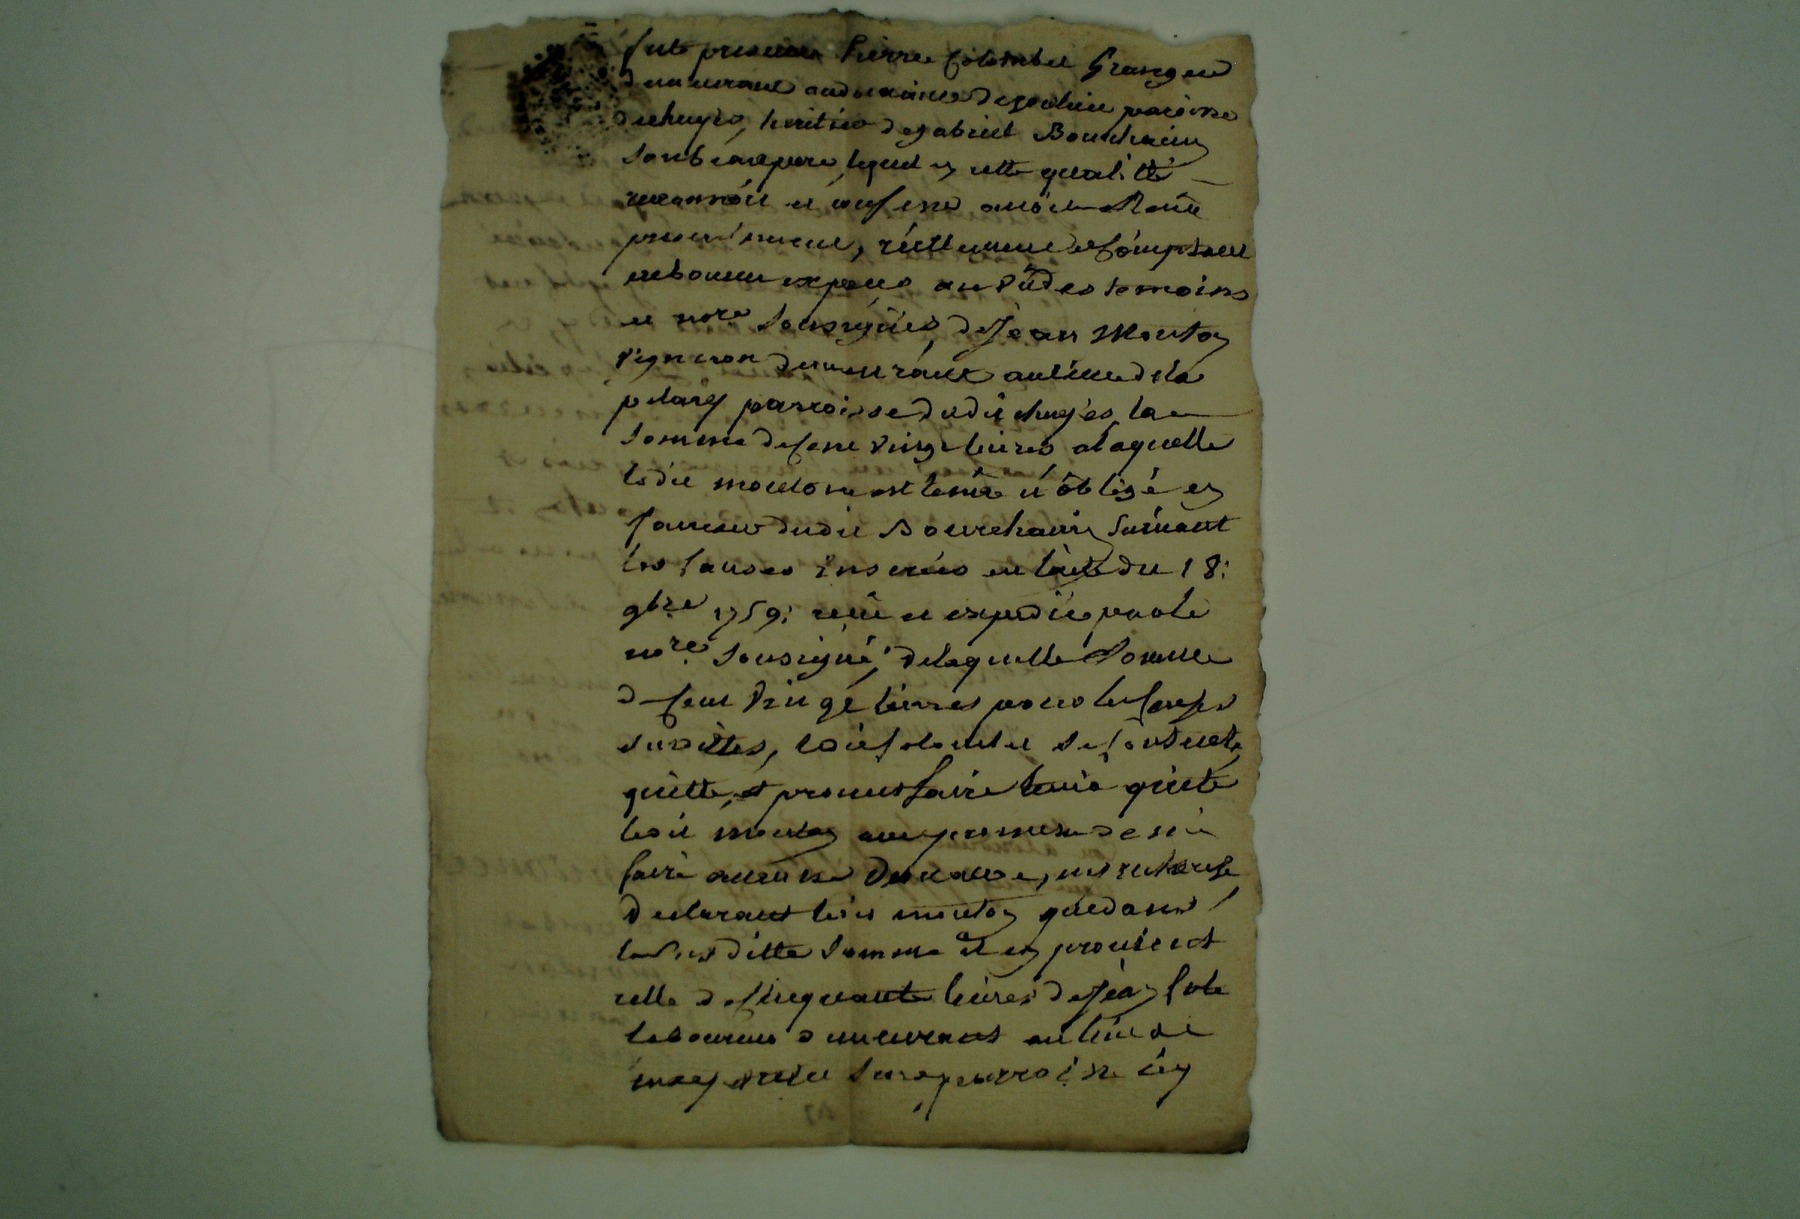 fut present Pierre Colombet Granger
demeurant au domaine de paroisse
de chuyes, heritier de gabriel Bourchanin
son beaupere, lequel en cette qualitté
reconnoit et confesse avoir Reçû
presentement, réellement et Comptant
en bonnes expeces au Vû des temoins
et nore. Soussignés, de Jean Mouton
Vigneron demeurant au lieu de la
parroisse dudit chuyes la
somme de Cent Vingt livres a laquelle
ledit mouton est tenû et obligé en
faveur dudit Bourchanin Suivant
les Causes Inserées en l'acte du 18:
9bre 1759: reçû et expedié par le
nore. Soussigné, de laquelle Somme
de Cent Vingt livres pour les Causes
Sudittes, ledit Colombet Se Contente,
quitte, et promet faire tenir quitte
ledit mouton avec promesse de n'en
faire aucune demande, ny recherche
declarant ledit mouton que dans
la Susditte Somme il en provient
celle de Cinquante livres de Jean
laboureur demeurant au lieu de
parroisse